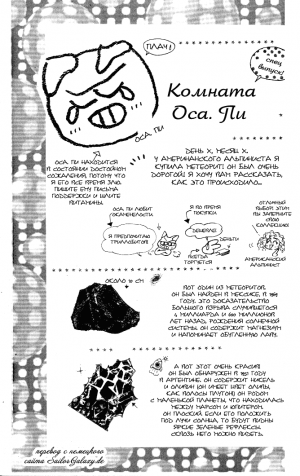 ПЛАЧ!
СПЕЦ
ВЫПУСК!
Комната
Оса. Пи
ОСА. ПИ
ДЕНЬ X, МЕСЯЦ X.
У АМЕРИКАНСКОГО АЛЬПИНИСТА Я
КУПИЛА МЕТЕОРИТ! ОН БЫЛ ОЧЕНЬ
ДОРОГОЙ! Я ХОЧУ ВАМ РАССКАЗАТЬ,
КАК ЭТО ПРОИСХОДИЛО...
ОСА. ПИ НАХОДИТСЯ
В СОСТОЯНИИ ДОСТОЙНОМ
СОЖАЛЕНИЯ, ПОТОМУ ЧТО
Я ЕГО ВСЕ ВРЕМЯ ЗЛЮ.
ПИШИТЕ ЕМУ ПИСЬМА
ПОДДЕРЖКИ И ШЛИТЕ
ВИТАМИНЫ.
ОСА. ПИ ЛЮБИТ
ОКАМЕНЕЛОСТИ
Я ПРЕДПОЧИТАЮ
ТРИЛОБИТОВ!
Я ВО ВРЕМЯ
ПОКУПКИ
ДЕШЕВЛЕ!
ДЕНЬГИ
ВСЕГДА
ТОРГУЕТСЯ
ОТЛИЧНЫЙ
ВЫБОР! ЭТИМ
ВЫ ЗАВЕРШИТЕ
СВОЮ
КОЛЛЕКЦИЮ!
АМЕРИКАНСКИЙ
АЛЬПИНИСТ
ОКОЛО 10 СМ
ВОТ ОДИН ИЗ МЕТЕОРИТОВ.
ОН БЫЛ НАЙДЕН В МЕКСИКЕ, В 1969
ГОДУ. ЭТО ДОКАЗАТЕЛЬСТВО
БОЛЬШОГО ВЗРЫВА, СЛУЧИВШЕГОСЯ
4 МИЛЛИАРДА И 600 МИЛЛИОНОВ
ЛЕТ НАЗАД, РОЖДЕНИЯ СОЛНЕЧНОЙ
СИСТЕМЫ. ОН СОДЕРЖИТ МАГНЕЗИУМ
И НАПОМИНАЕТ ОБУГЛЕННУЮ ЛАПИ.
А ВОТ ЭТОТ ОЧЕНЬ КРАСИВ!
ОН БЫЛ ОБНАРУЖЕН В 1951 ГОДУ
В АРГЕНТИНЕ. ОН СОДЕРЖИТ НИКЕЛЬ
ОЛИВИН (ОН ИМЕЕТ ЦВЕТ ОЛИВЫ,
КАК ВОЛОСЫ ПЛУТОНА) ОН РОДОМ
С МАЛЕНЬКОЙ ПЛАНЕТЫ, ЧТО НАХОДИЛАСЬ
МЕЖДУ МАРСОМ И ЮПИТЕРОМ.
ОН ПЛОСКИЙ. ЕСЛИ ЕГО ПОЛОЖИТЬ
ПОД ЛУЧИ СОЛНЦА, ТО БУДУТ ВИДНЫ
ЯРКИЕ ЗЕЛЕНЫЕ РЕФЛЕКСЫ.
СКВОЗЬ НЕГО МОЖНО ВИДЕТЬ.
перевод с немецкого
сайта SailorGalaxy.de